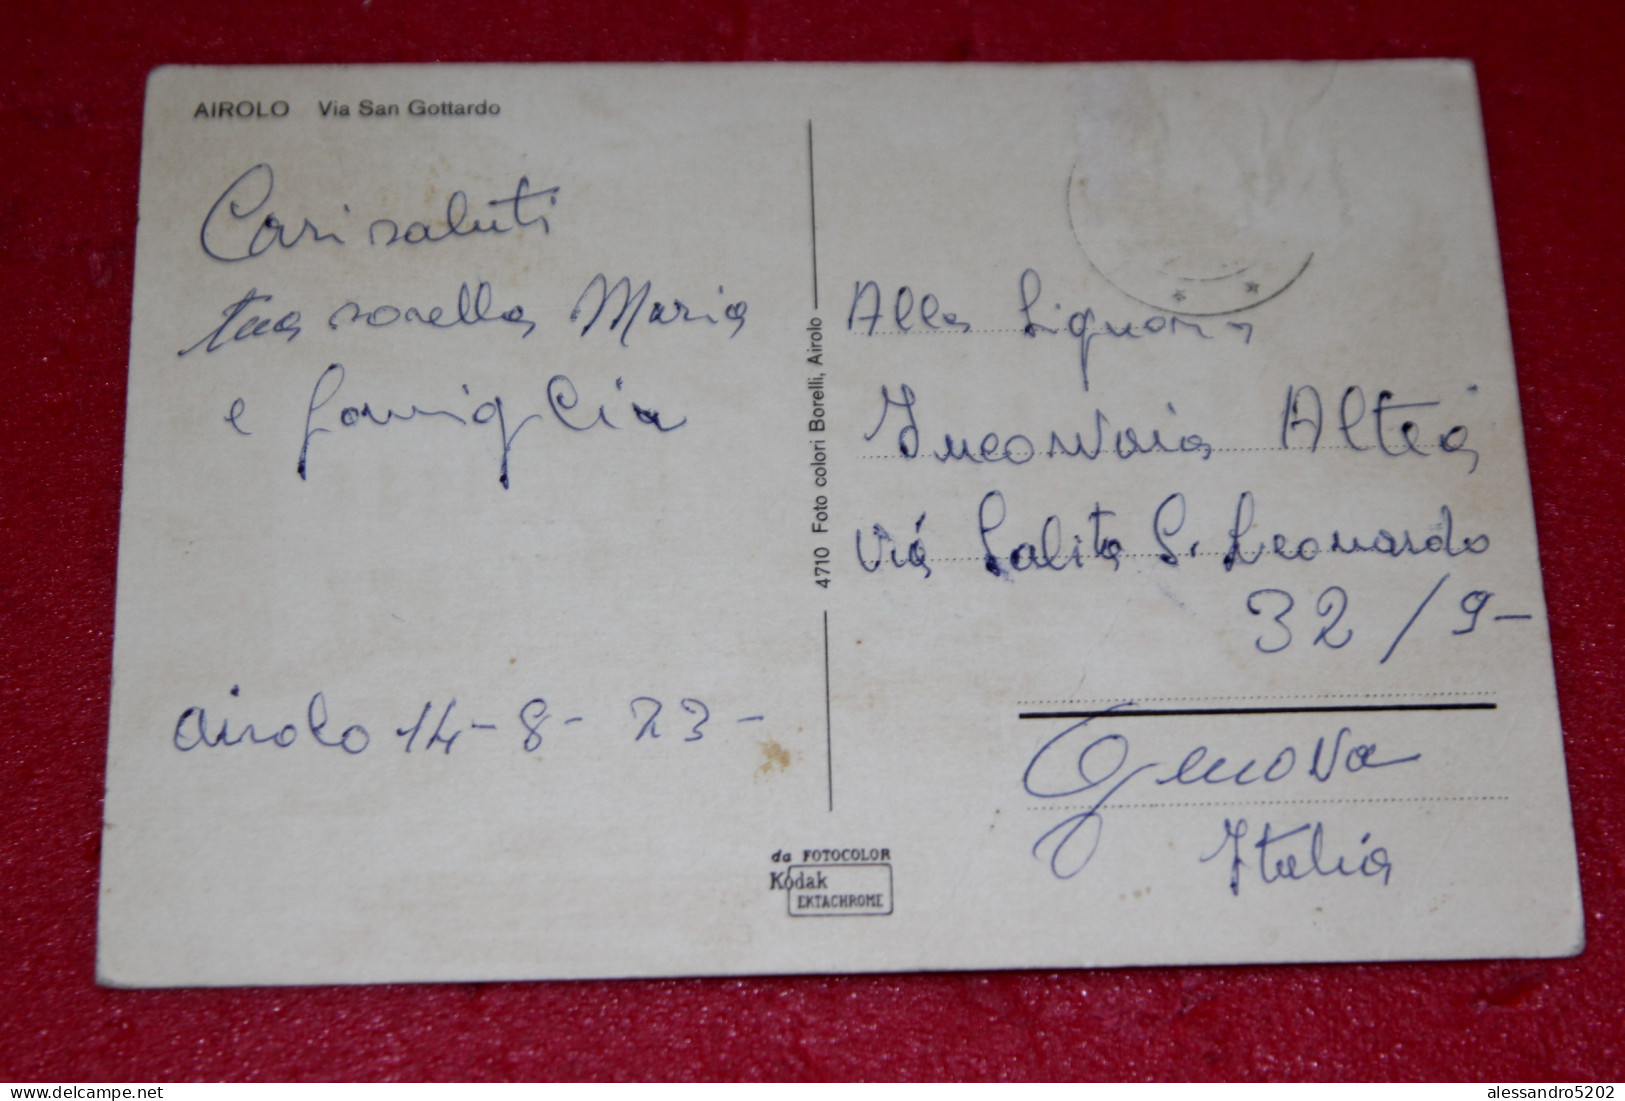 AIROLO Via San Gottardo
Cari saluti
tua sorella Maria
e famiglia
airolo 14-8-73-
4710 Foto colori Borelli, Airolo
Alla Signora
Altea
via Salita S. Leonardo
32/9-
Genova
Italia
da FOTOCOLOR
Kodak
EKTACHROME
delcampe.net
alessandro5202